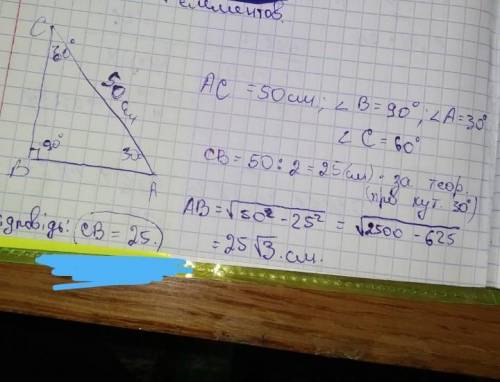 елементов.
C
60°
50 см
90°
30°
B
A
AC = 50 см; ∠B = 90°; ∠A = 30°
∠C = 60°
CB = 50 : 2 = 25 (см) · за теор.
(про кут. 30°)
AB = √50² - 25² = √2500 - 625
= 25√3 см.
ідповідь: CB = 25.